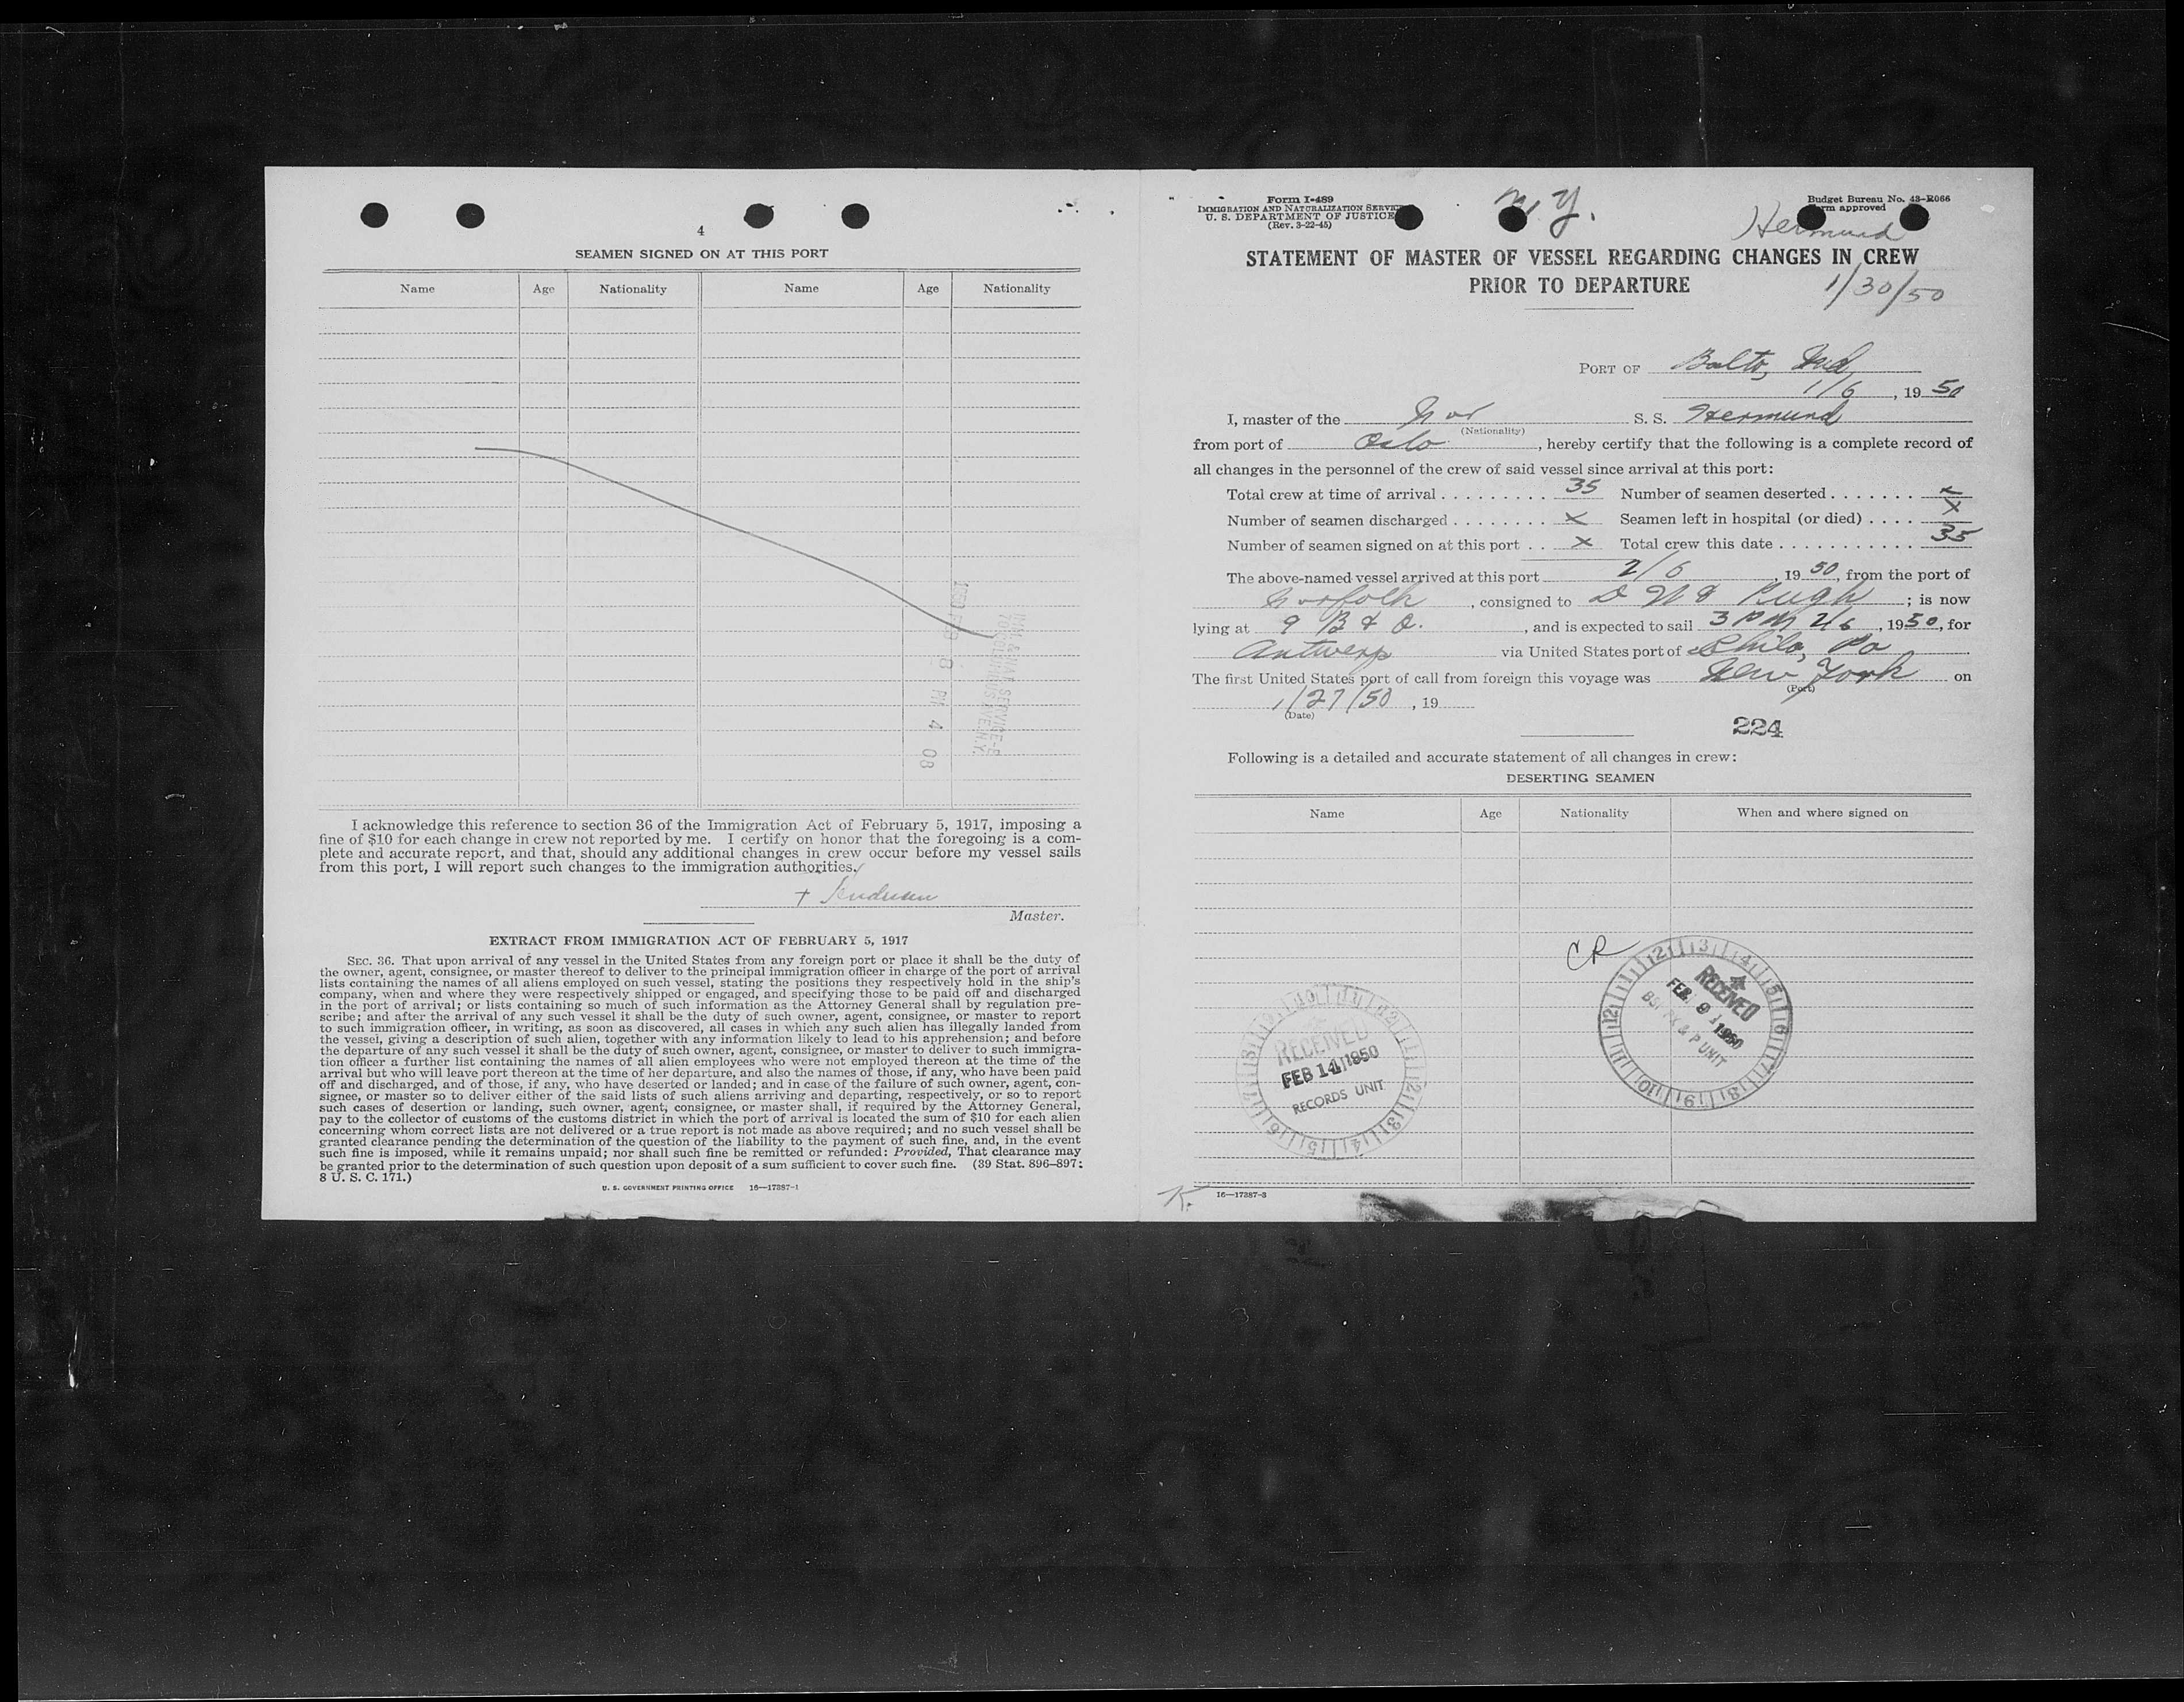 4
SEAMEN SIGNED ON AT THIS PORT
Name Age Nationality Name Age Nationality
I acknowledge this reference to section 36 of the Immigration Act of February 5, 1917, imposing a
fine of $10 for each change in crew not reported by me. I certify on honor that the foregoing is a com-
plete and accurate report, and that, should any additional changes in crew occur before my vessel sails
from this port, I will report such changes to the immigration authorities.
Master.
EXTRACT FROM IMMIGRATION ACT OF FEBRUARY 5, 1917
SEC. 36. That upon arrival of any vessel in the United States from any foreign port or place it shall be the duty of
the owner, agent, consignee, or master thereof to deliver to the principal immigration officer in charge of the port of arrival
lists containing the names of all aliens employed on such vessel, stating the positions they respectively hold in the ship's
company, when and where they were respectively shipped or engaged, and specifying those to be paid off and discharged
in the port of arrival; or lists containing so much of such information as the Attorney General shall by regulation pre-
scribe; and after the arrival of any such vessel it shall be the duty of such owner, agent, consignee, or master to report
to such immigration officer, in writing, as soon as discovered, all cases in which any such alien has illegally landed from
the vessel, giving a description of such alien, together with any information likely to lead to his apprehension; and before
the departure of any such vessel it shall be the duty of such owner, agent, consignee, or master to deliver to such immigra-
tion officer a further list containing the names of all alien employees who were not employed thereon at the time of the
arrival but who will leave port thereon at the time of her departure, and also the names of those, if any, who have been paid
off and discharged, and of those, if any, who have deserted or landed; and in case of the failure of such owner, agent, con-
signee, or master so to deliver either of the said lists of such aliens arriving and departing, respectively, or so to report
such cases of desertion or landing, such owner, agent, consignee, or master shall, if required by the Attorney General,
pay to the collector of customs of the customs district in which the port of arrival is located the sum of $10 for each alien
concerning whom correct lists are not delivered or a true report is not made as above required; and no such vessel shall be
granted clearance pending the determination of the question of the liability to the payment of such fine, and, in the event
such fine is imposed, while it remains unpaid; nor shall such fine be remitted or refunded: Provided, That clearance may
be granted prior to the determination of such question upon deposit of a sum sufficient to cover such fine. (39 Stat. 896-897;
8 U. S. C. 171.)
U. S. GOVERNMENT PRINTING OFFICE 16—17387-1
Form I-489
IMMIGRATION AND NATURALIZATION SERVICE
U. S. DEPARTMENT OF JUSTICE
(Rev. 3-22-45)
N.Y.
Budget Bureau No. 43-R066
Form approved
Hermund
STATEMENT OF MASTER OF VESSEL REGARDING CHANGES IN CREW
PRIOR TO DEPARTURE
1/30/50
PORT OF Balto, Md,
1/6, 19 50
I, master of the Nor S. S. Hermund
(Nationality)
from port of Oslo, hereby certify that the following is a complete record of
all changes in the personnel of the crew of said vessel since arrival at this port:
Total crew at time of arrival . . . . . . . . . 35 Number of seamen deserted . . . . . . . x
Number of seamen discharged . . . . . . . . x Seamen left in hospital (or died) . . . . x
Number of seamen signed on at this port . . x Total crew this date . . . . . . . . . . . 35
The above-named vessel arrived at this port 2/6, 19 50, from the port of
Norfolk, consigned to Pugh; is now
lying at 9 B & O., and is expected to sail 3 PM 2/6, 1950, for
Antwerp via United States port of Phila, Pa
The first United States port of call from foreign this voyage was New York on
(Port)
1/27/50, 19
(Date)
224
Following is a detailed and accurate statement of all changes in crew:
DESERTING SEAMEN
Name Age Nationality When and where signed on
CR
RECEIVED
FEB 14 1950
RECORDS UNIT
RECEIVED
FEB 9 1950
P UNIT
K.
16—17387-3